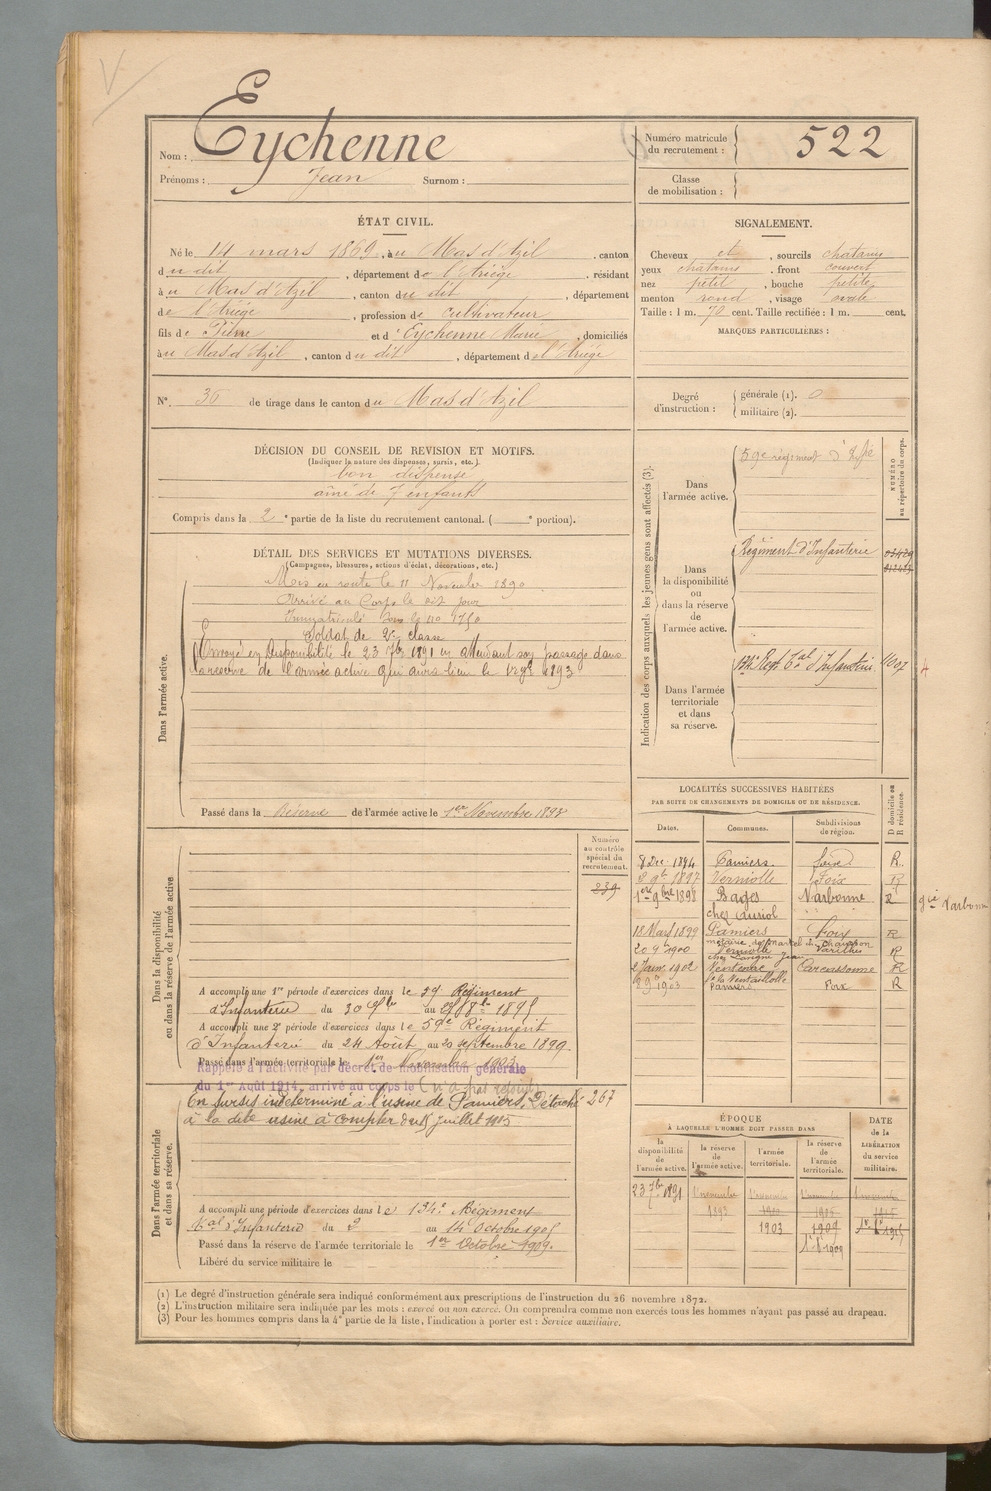 Nom : Eychenne
Prénoms : Jean Surnom :
Numéro matricule du recrutement : 522
Classe de mobilisation :
ÉTAT CIVIL.
Né le 14 mars 1869, à u Mas d'Azil, canton
d u dit, département de l'Ariège, résidant
à u Mas d'Azil, canton du dit, département
de l'Ariège, profession de cultivateur
fils de Pierre et d'Eychenne Marie, domiciliés
à u Mas d'Azil, canton d u dit, département de l'Ariège
N° 36 de tirage dans le canton du Mas d'Azil
SIGNALEMENT.
Cheveux et, sourcils chatains
yeux chatains, front couvert
nez petit, bouche petite
menton rond, visage ovale
Taille : 1 m. 70 cent. Taille rectifiée : 1 m. cent.
MARQUES PARTICULIÈRES :
Degré d'instruction : générale (1). 0
militaire (2).
DÉCISION DU CONSEIL DE REVISION ET MOTIFS.
(Indiquer la nature des dispenses, sursis, etc.)
bon dispensé
aîné de 7 enfants
Compris dans la 2e partie de la liste du recrutement cantonal. ( e portion).
DÉTAIL DES SERVICES ET MUTATIONS DIVERSES.
(Campagnes, blessures, actions d'éclat, décorations, etc.)
Dans l'armée active.
Mis en route le 11 Novembre 1890
Arrivé au Corps le dit jour
Immatriculé sous le no 1750
Soldat de 2e classe
Envoyé en disponibilité le 23 7bre 1891 en attendant son passage dans
la réserve de l'armée active qui aura lieu le 1er 9bre 1893
Passé dans la Réserve de l'armée active le 1er Novembre 1893
Indication des corps auxquels les jeunes gens sont affectés (3).
NUMÉRO au répertoire du corps.
Dans l'armée active.
59e régiment d'Inf.ie
Dans la disponibilité ou dans la réserve de l'armée active.
Régiment d'Infanterie
Dans l'armée territoriale et dans sa réserve.
134e Regt Tal d'Infanterie
LOCALITÉS SUCCESSIVES HABITÉES
PAR SUITE DE CHANGEMENTS DE DOMICILE OU DE RÉSIDENCE.
Dates. Communes. Subdivisions de région. D domicile ou R résidence.
8 Dec. 1894 Pamiers. Foix R.
1897 Verniolle Foix R
1er 9bre 1898 Bages Narbonne R
chez Auriol
18 Mars 1899 Pamiers Foix R
20 1900 Verniolle R
2 Janv. 1902 Ventenac Carcassonne R
1903 Pamiers Foix R
Dans la disponibilité ou dans la réserve de l'armée active
Numéro au contrôle spécial du recrutement.
239
A accompli une 1re période d'exercices dans le 59 Régiment
d'Infanterie du 30 au 1895
A accompli une 2e période d'exercices dans le 59e Régiment
d'Infanterie du 24 Août au 20 septembre 1899
Passé dans l'armée territoriale le 1er Novembre 1903
Rappelé à l'activité par décret de mobilisation générale
du 1er Août 1914, arrivé au corps le
Dans l'armée territoriale et dans sa réserve.
En sursis indéterminé à l'usine de Pamiers. Détaché 267
à la dite usine à compter du 15 juillet 1915
A accompli une période d'exercices dans le 134e Régiment
Tal d'Infanterie du 2 au 14 Octobre 1905
Passé dans la réserve de l'armée territoriale le 1er Octobre 1909.
Libéré du service militaire le
ÉPOQUE
À LAQUELLE L'HOMME DOIT PASSER DANS
DATE de la LIBÉRATION du service militaire.
la disponibilité de l'armée active. la réserve de l'armée active. l'armée territoriale. la réserve de l'armée territoriale.
23 7bre 1891
1893
1903 1909
(1) Le degré d'instruction générale sera indiqué conformément aux prescriptions de l'instruction du 26 novembre 1872.
(2) L'instruction militaire sera indiquée par les mots : exercé ou non exercé. On comprendra comme non exercés tous les hommes n'ayant pas passé au drapeau.
(3) Pour les hommes compris dans la 4e partie de la liste, l'indication à porter est : Service auxiliaire.